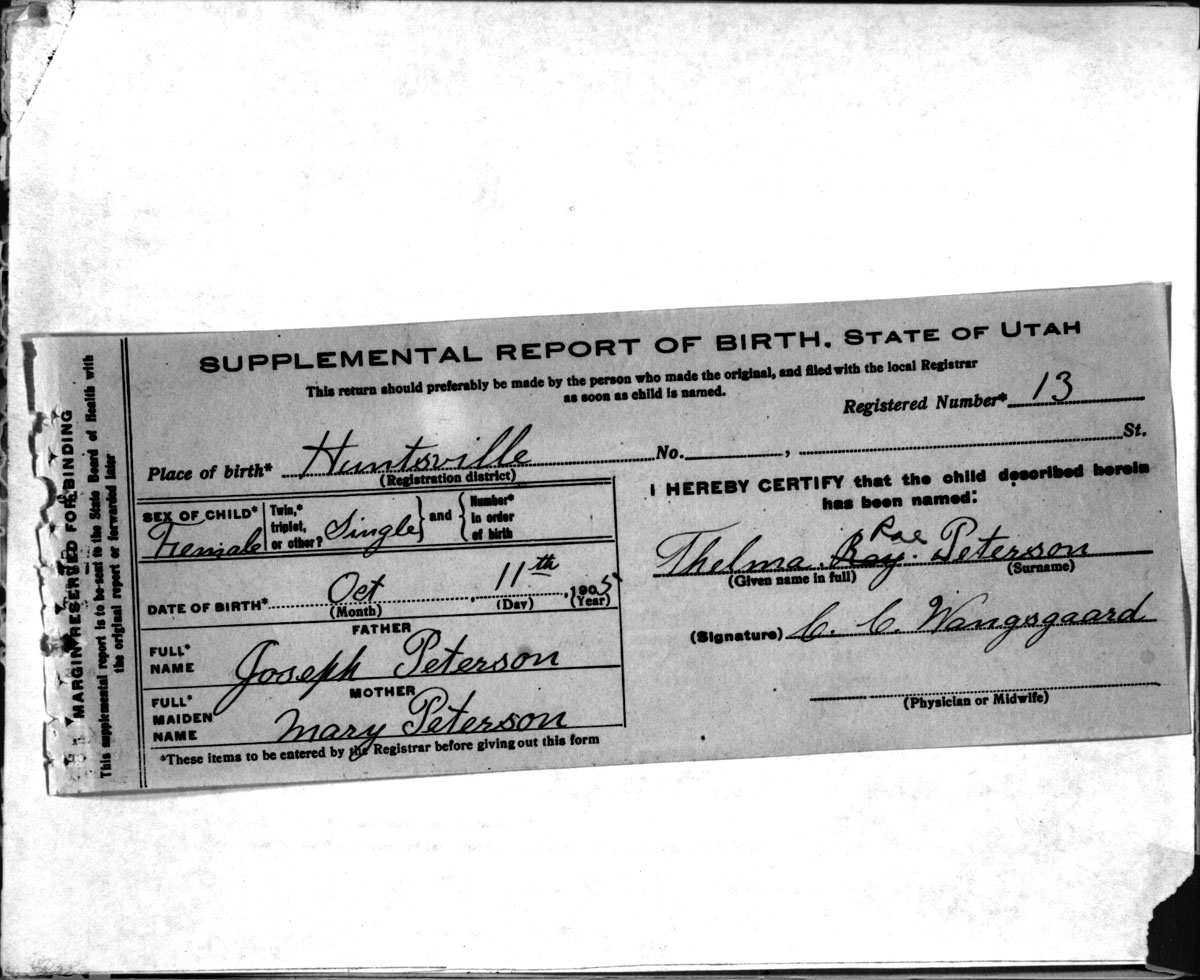 SUPPLEMENTAL REPORT OF BIRTH. STATE OF UTAH
This return should preferably be made by the person who made the original, and filed with the local Registrar
as soon as child is named.
Registered Number* 13
Place of birth* Huntsville No. , St.
(Registration district)
SEX OF CHILD* Female
Twin,* triplet, or other? Single } and { Number* in order of birth
DATE OF BIRTH* Oct , 11th , 1905
(Month) (Day) (Year)
FATHER
FULL* NAME Joseph Peterson
MOTHER
FULL* MAIDEN NAME Mary Peterson
*These items to be entered by the Registrar before giving out this form
I HEREBY CERTIFY that the child described herein
has been named:
Rae
Thelma Ray. Peterson
(Given name in full) (Surname)
(Signature) C. C. Wangsgaard
(Physician or Midwife)
MARGIN RESERVED FOR BINDING
This supplemental report is to be sent to the State Board of Health with
the original report or forwarded later